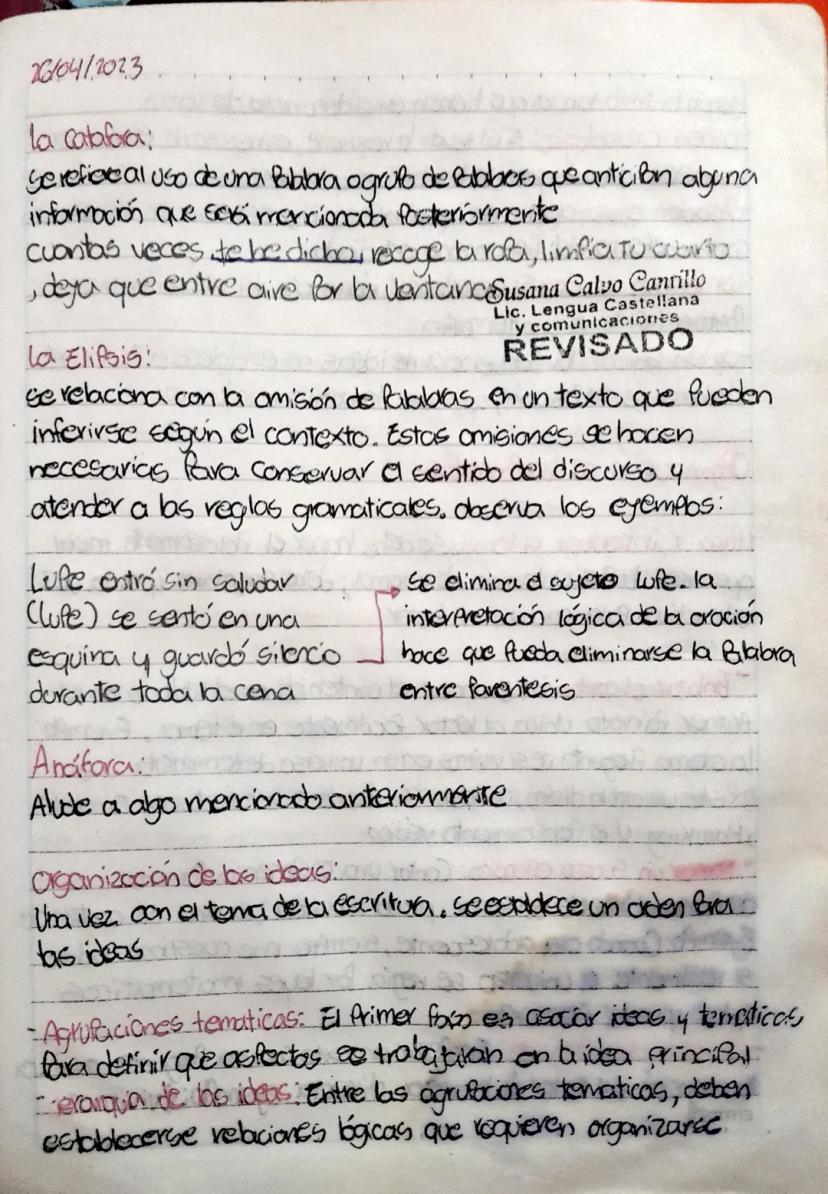 26/04/2023
la catafora:
se refiere al uso de una Palabra o grupo de Palabras que anticiPan alguna
información que será mencionada Posteriormente
cuantas veces te he dicho, recoge la roPa, limPia Tu cuarto
, deja que entre aire Por la ventana
Susana Calvo Canrillo
Lic. Lengua Castellana
y comunicaciones
REVISADO
la EliPsis:
se relaciona con la omisión de Palabras en un texto que Pueden
inferirse según el contexto. Estas omisiones se hacen
necesarias Para conservar el sentido del discurso y
atender a las reglas gramaticales. observa los ejemPlos:
LuPe entró sin saludar
(luPe) se sentó en una
esquina y guardó silencio
durante toda la cena
se elimina el sujeto luPe. la
interPretación lógica de la oración
hace que Pueda eliminarse la Palabra
entre Parentesis
Anáfora:
Alude a algo mencionado anteriormente
organización de las ideas:
Una vez con el tema de la escritura. se establece un orden Para
las ideas
- AgruPaciones tematicas: El Primer Paso es asociar ideas y tematicas
Para definir que asPectos se trabajaran en la idea principal
- Jerarquia de las ideas: Entre las agruPaciones tematicas, deben
establecerse relaciones lógicas que requieren organizarse